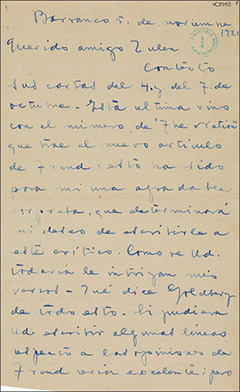 Barranco 5. de noviembre
192
Querido amigo Zulen
Contesto
sus cartas del 4. y del 7. de
octubre. Esta ultima vino
con el número de "The Nation"
que trae el nuevo artículo
de Frond: esto ha sido
para mi una agradable
sorpresa, que determinará
mi deseo de escribirle a
este crítico. Como ve Ud.
todavia le intrigan mis
versos. - Qué dice Goldberg
de todo esto. Si pudiera
Ud. escribir algunas líneas
respecto a las opiniones de
Frond sería excelente; pero